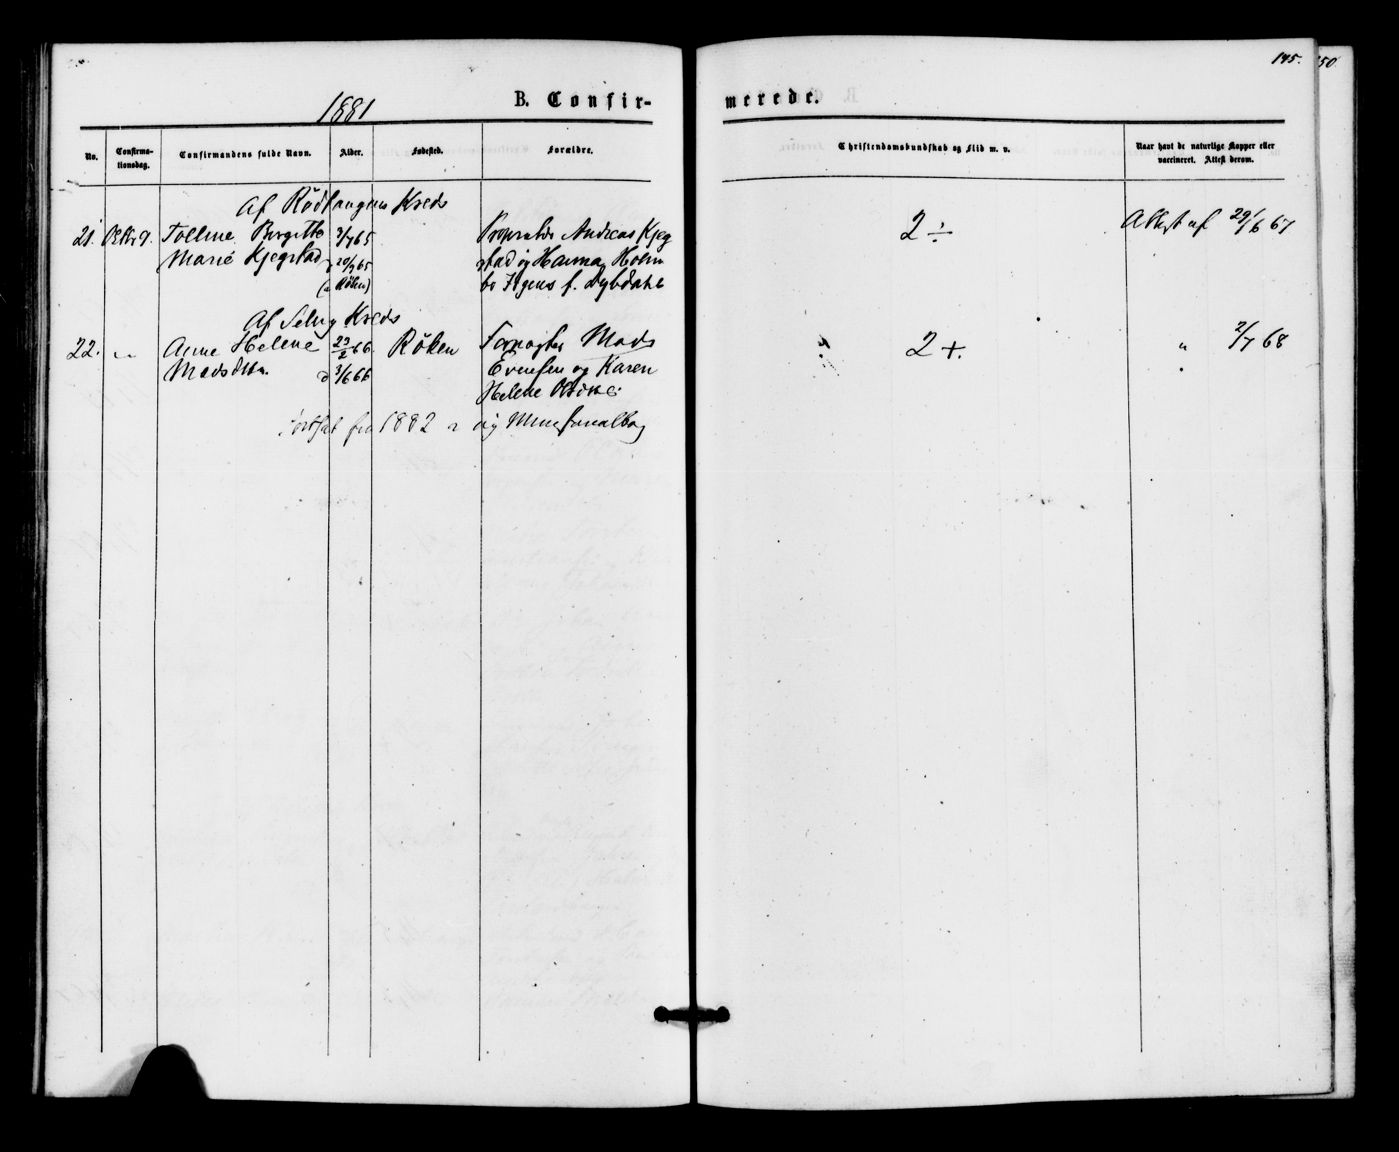 145.
50
1881
B. Confir-
merede.
No.
Confirma-
tionsdag.
Confirmandens fulde Navn.
Alder.
Fødested.
Forældre.
Christendomskundskab og Flid m. v.
Naar havt de naturlige Kopper eller
vaccineret. Attest derom.
Af Rødtangens Kreds
21. Octbr 9. Birgitte 3/7 65 Andreas Kjeg
Marie Kjegstad 20/9 65 stad og Hanna Holm
(Røken) bo f. Dybdahl
2 ÷
Attest af 29/6 67
Af Selvig Kreds
22. Anne Helene 23/2 66 Røken Forpagter Mads
3/6 66 Evensen og Karen
Helene
2 +.
" 2/7 68
fortsat fra 1882 i ny Ministerialbog